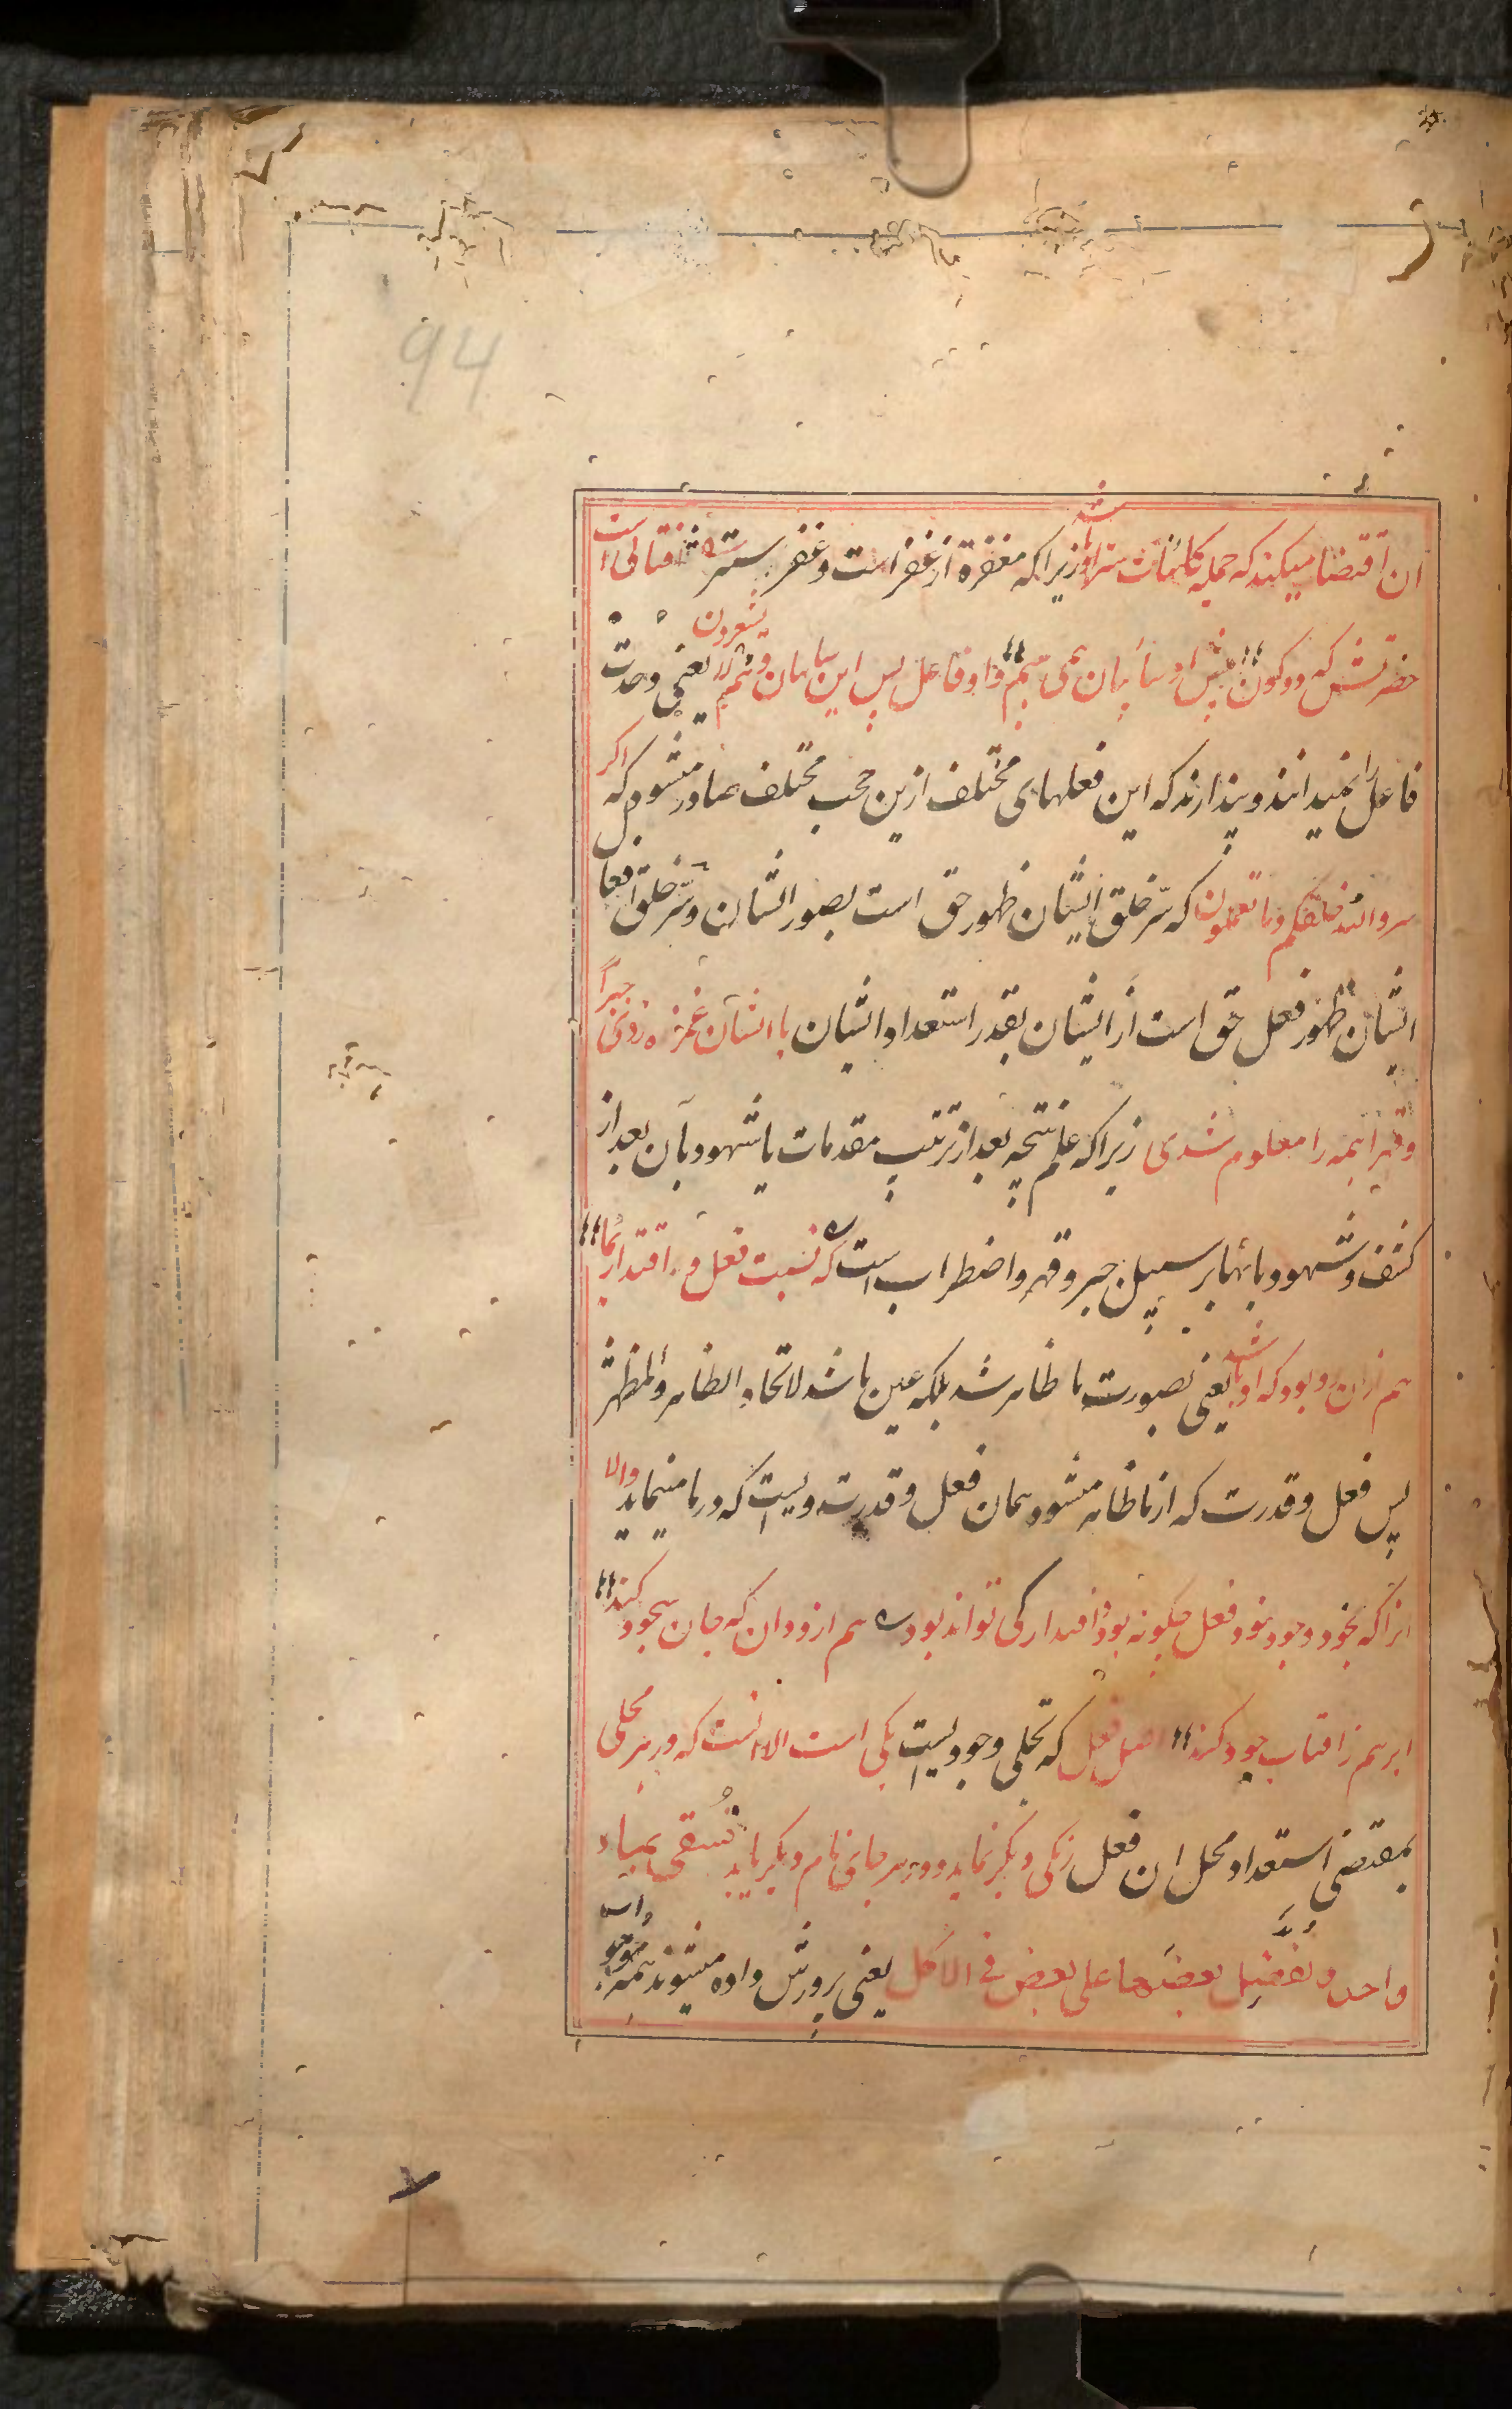 94
آن اقتضا میکند که جمله کائنات ستر او باشد زیرا که مغفرة از غفر است و غفر ستر است آفتابی است
حضرتش که دو کون پیش او سایبان همی بینم و او فاعل پس این سایبان و هم لا یشعرون یعنی وحدت
فاعل را نمیدانند و پندارند که این فعلهای مختلف ازین حجب مختلف صادر میشود که اگر
سر والله خلقکم وما تعملون که سر خلق ایشان ظهور حق است بصور ایشان و سر خلق افعال
ایشان ظهور فعل حق است از ایشان بقدر استعداد ایشان با ایشان غمزه زدی جبراً
و قهراً همه را معلوم شدی زیرا که علم نتیجه بعد از ترتیب مقدمات یا شهود بآن بعد از
کشف و شهود بآنها بر سبیل جبر و قهر و اضطراب است که نسبت فعل و اقتدار بما
هم ازان رو بود که او ما شد یعنی بصورت ما ظاهر شد بلکه عین ما شد لاتحاد الظاهر والمظهر
پس فعل و قدرت که از ما ظاهر میشود همان فعل و قدرت ویست که در ما مینماید والا
انرا که بخود وجود نبود فعل چگونه بود و اقتدار کی تواند بود هم ازو دان که جان سجود کند
ابر هم ز افتاب جود کند اصل فعل که تجلی وجودیست یکی است الا انست که در هر محلی
بمقتضی استعداد محل ان فعل رنگی دیگر نماید و در هر جای نام دیگر یابد تسقی بماء
واحد ونفضل بعضها على بعض في الاکل یعنی پرورش داده میشوند همه